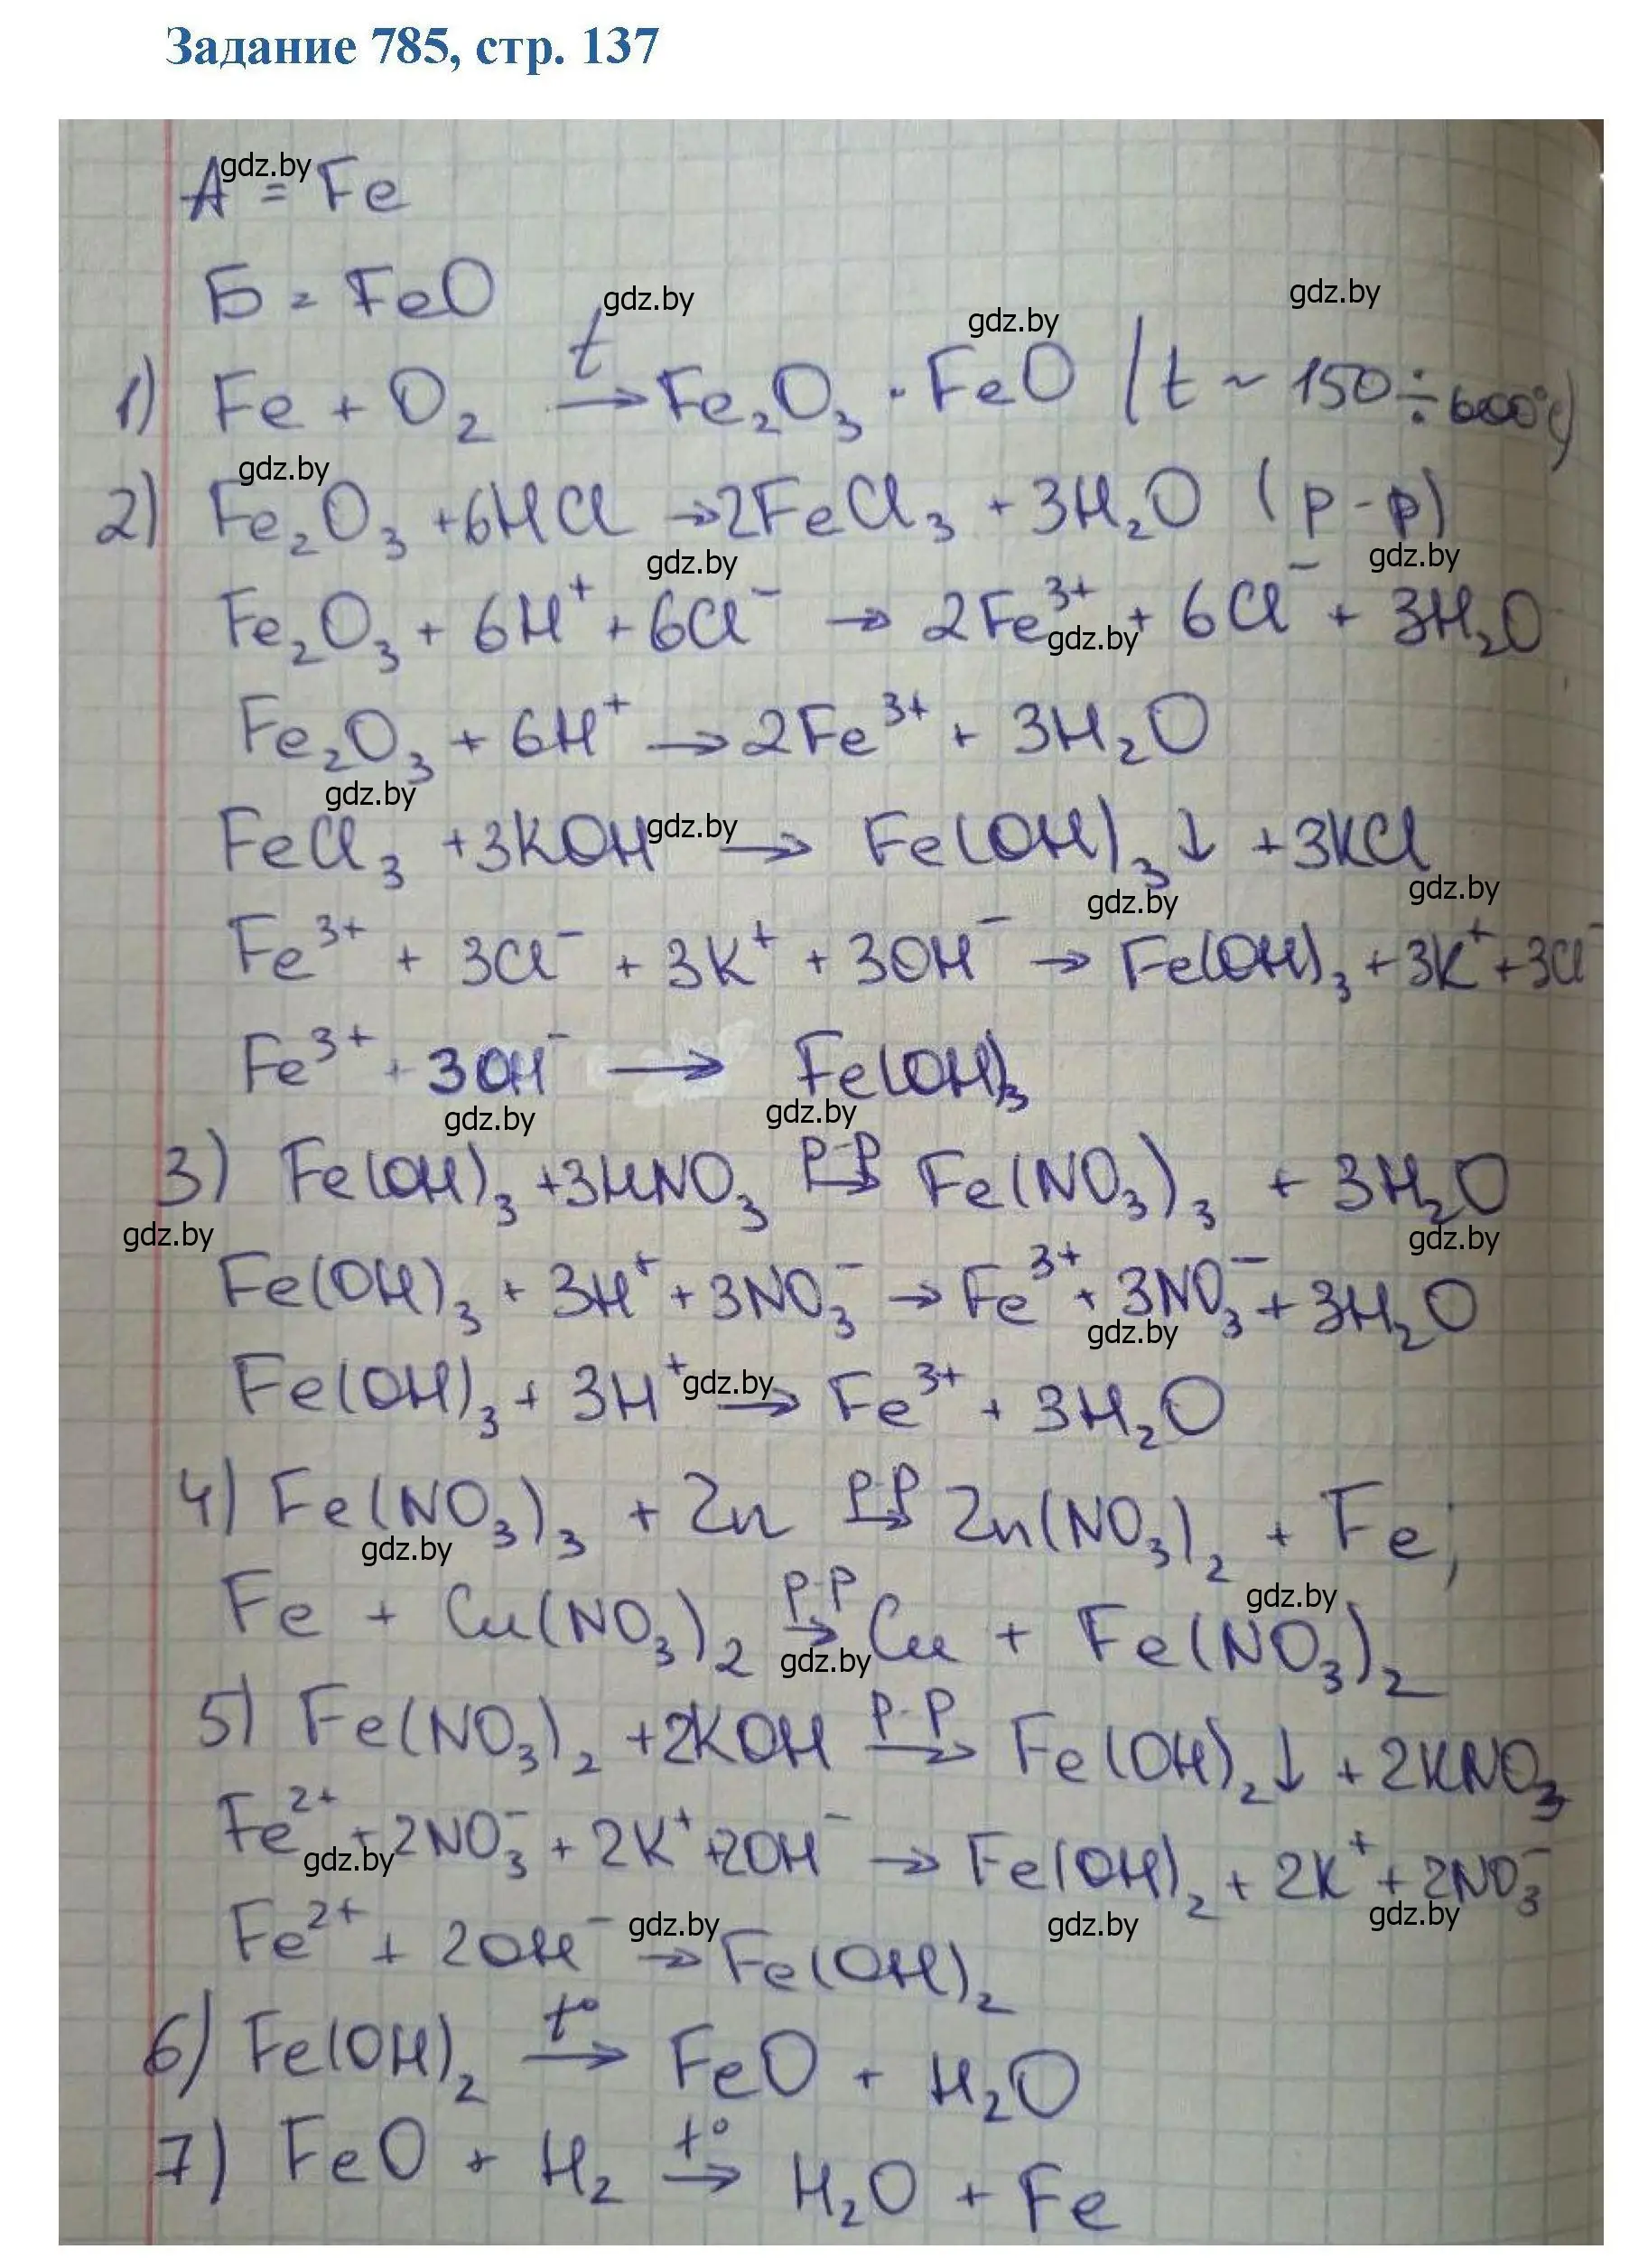 Задание 785, стр. 137
gdz.by
A = Fe
Б = FeO
gdz.by gdz.by gdz.by
1) Fe + O₂ →(t) Fe₂O₃ · FeO (t ~ 150 ÷ 600°C)
gdz.by
2) Fe₂O₃ + 6HCl → 2FeCl₃ + 3H₂O (р-р)
gdz.by gdz.by
Fe₂O₃ + 6H⁺ + 6Cl⁻ → 2Fe³⁺ + 6Cl⁻ + 3H₂O
gdz.by
Fe₂O₃ + 6H⁺ → 2Fe³⁺ + 3H₂O
gdz.by
FeCl₃ + 3KOH → Fe(OH)₃↓ + 3KCl
gdz.by gdz.by gdz.by
Fe³⁺ + 3Cl⁻ + 3K⁺ + 3OH⁻ → Fe(OH)₃ + 3K⁺ + 3Cl⁻
Fe³⁺ + 3OH⁻ → Fe(OH)₃
gdz.by gdz.by
3) Fe(OH)₃ + 3HNO₃ →(р-р) Fe(NO₃)₃ + 3H₂O
gdz.by gdz.by
Fe(OH)₃ + 3H⁺ + 3NO₃⁻ → Fe³⁺ + 3NO₃⁻ + 3H₂O
gdz.by
Fe(OH)₃ + 3H⁺ → Fe³⁺ + 3H₂O
gdz.by
4) Fe(NO₃)₃ + Zn →(р-р) Zn(NO₃)₂ + Fe;
gdz.by
Fe + Cu(NO₃)₂ →(р-р) Cu + Fe(NO₃)₂
gdz.by gdz.by
5) Fe(NO₃)₂ + 2KOH →(р-р) Fe(OH)₂↓ + 2KNO₃
Fe²⁺ + 2NO₃⁻ + 2K⁺ + 2OH⁻ → Fe(OH)₂ + 2K⁺ + 2NO₃⁻
gdz.by gdz.by
Fe²⁺ + 2OH⁻ → Fe(OH)₂
gdz.by gdz.by
6) Fe(OH)₂ →(t°) FeO + H₂O
7) FeO + H₂ →(t°) H₂O + Fe